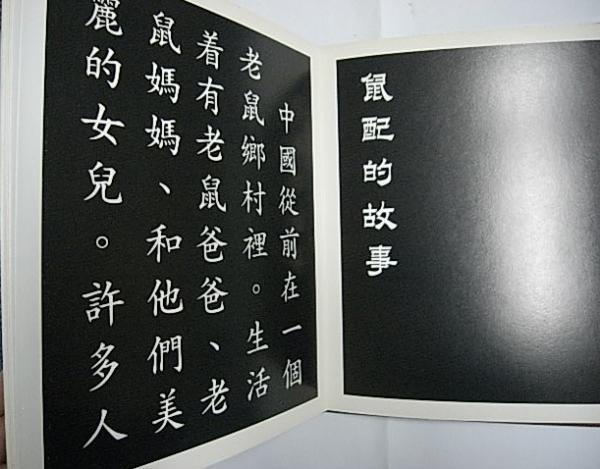 鼠配的故事
中國從前在一個
老鼠鄉村裡。生活
着有老鼠爸爸、老
鼠媽媽、和他們美
麗的女兒。許多人